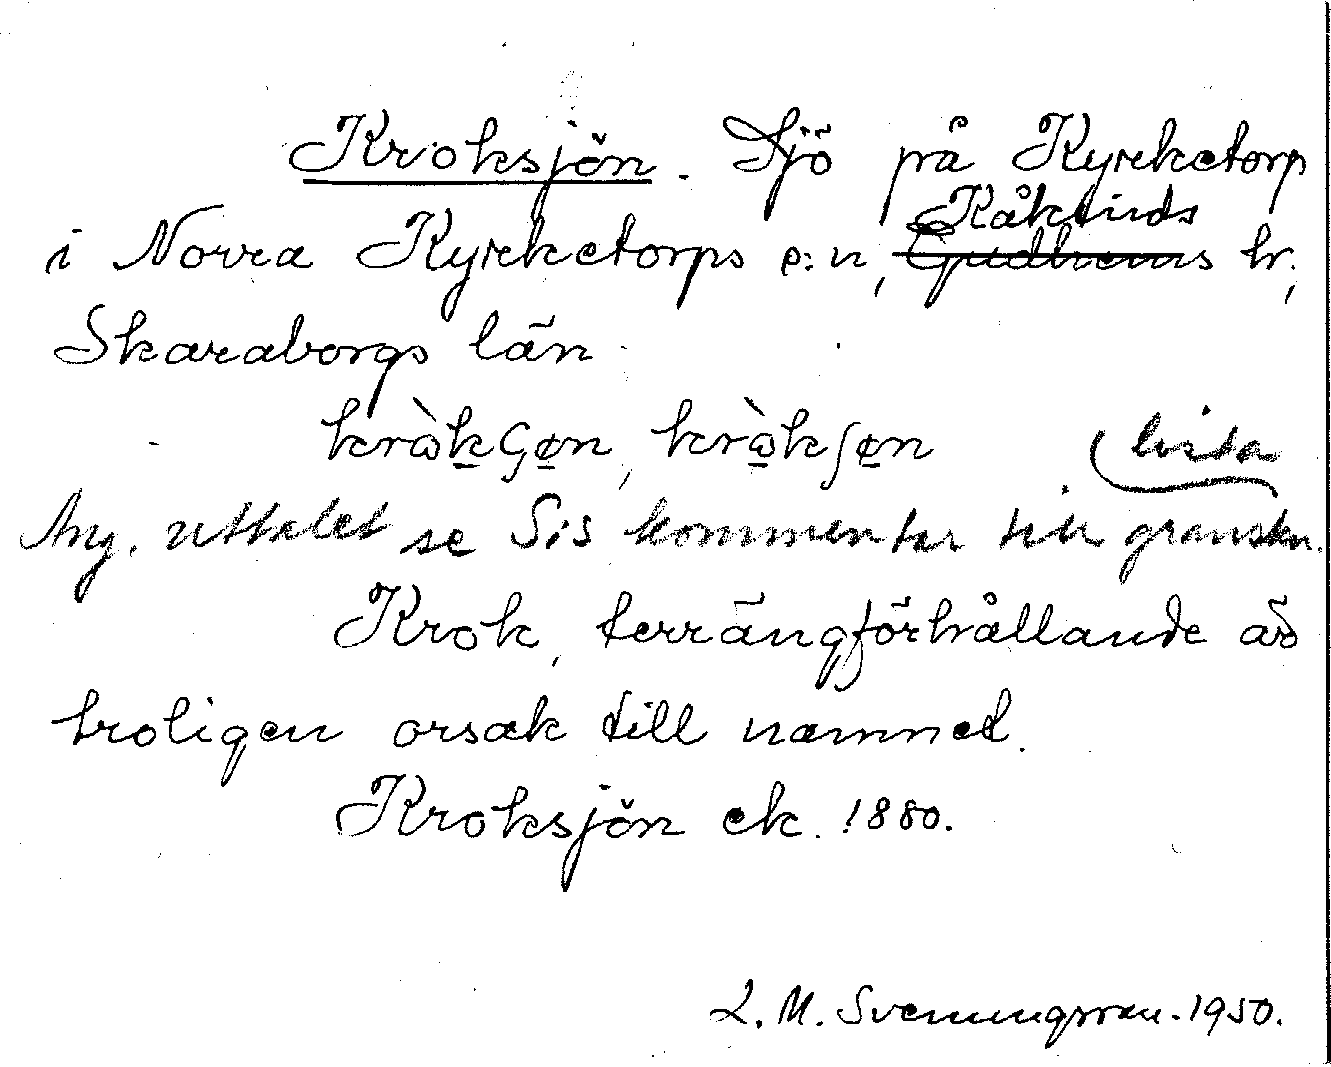 Kroksjön. Sjö på Kyrketorp
Kåkinds
i Norra Kyrketorps s:n, Gudhems hr,
Skaraborgs län
Ang. uttalet se SiS kommentar till granskn.
Krok, terrängförhållande är
troligen orsak till namnet.
Kroksjön ek. 1880.
L. M. Svenungsson. 1950.